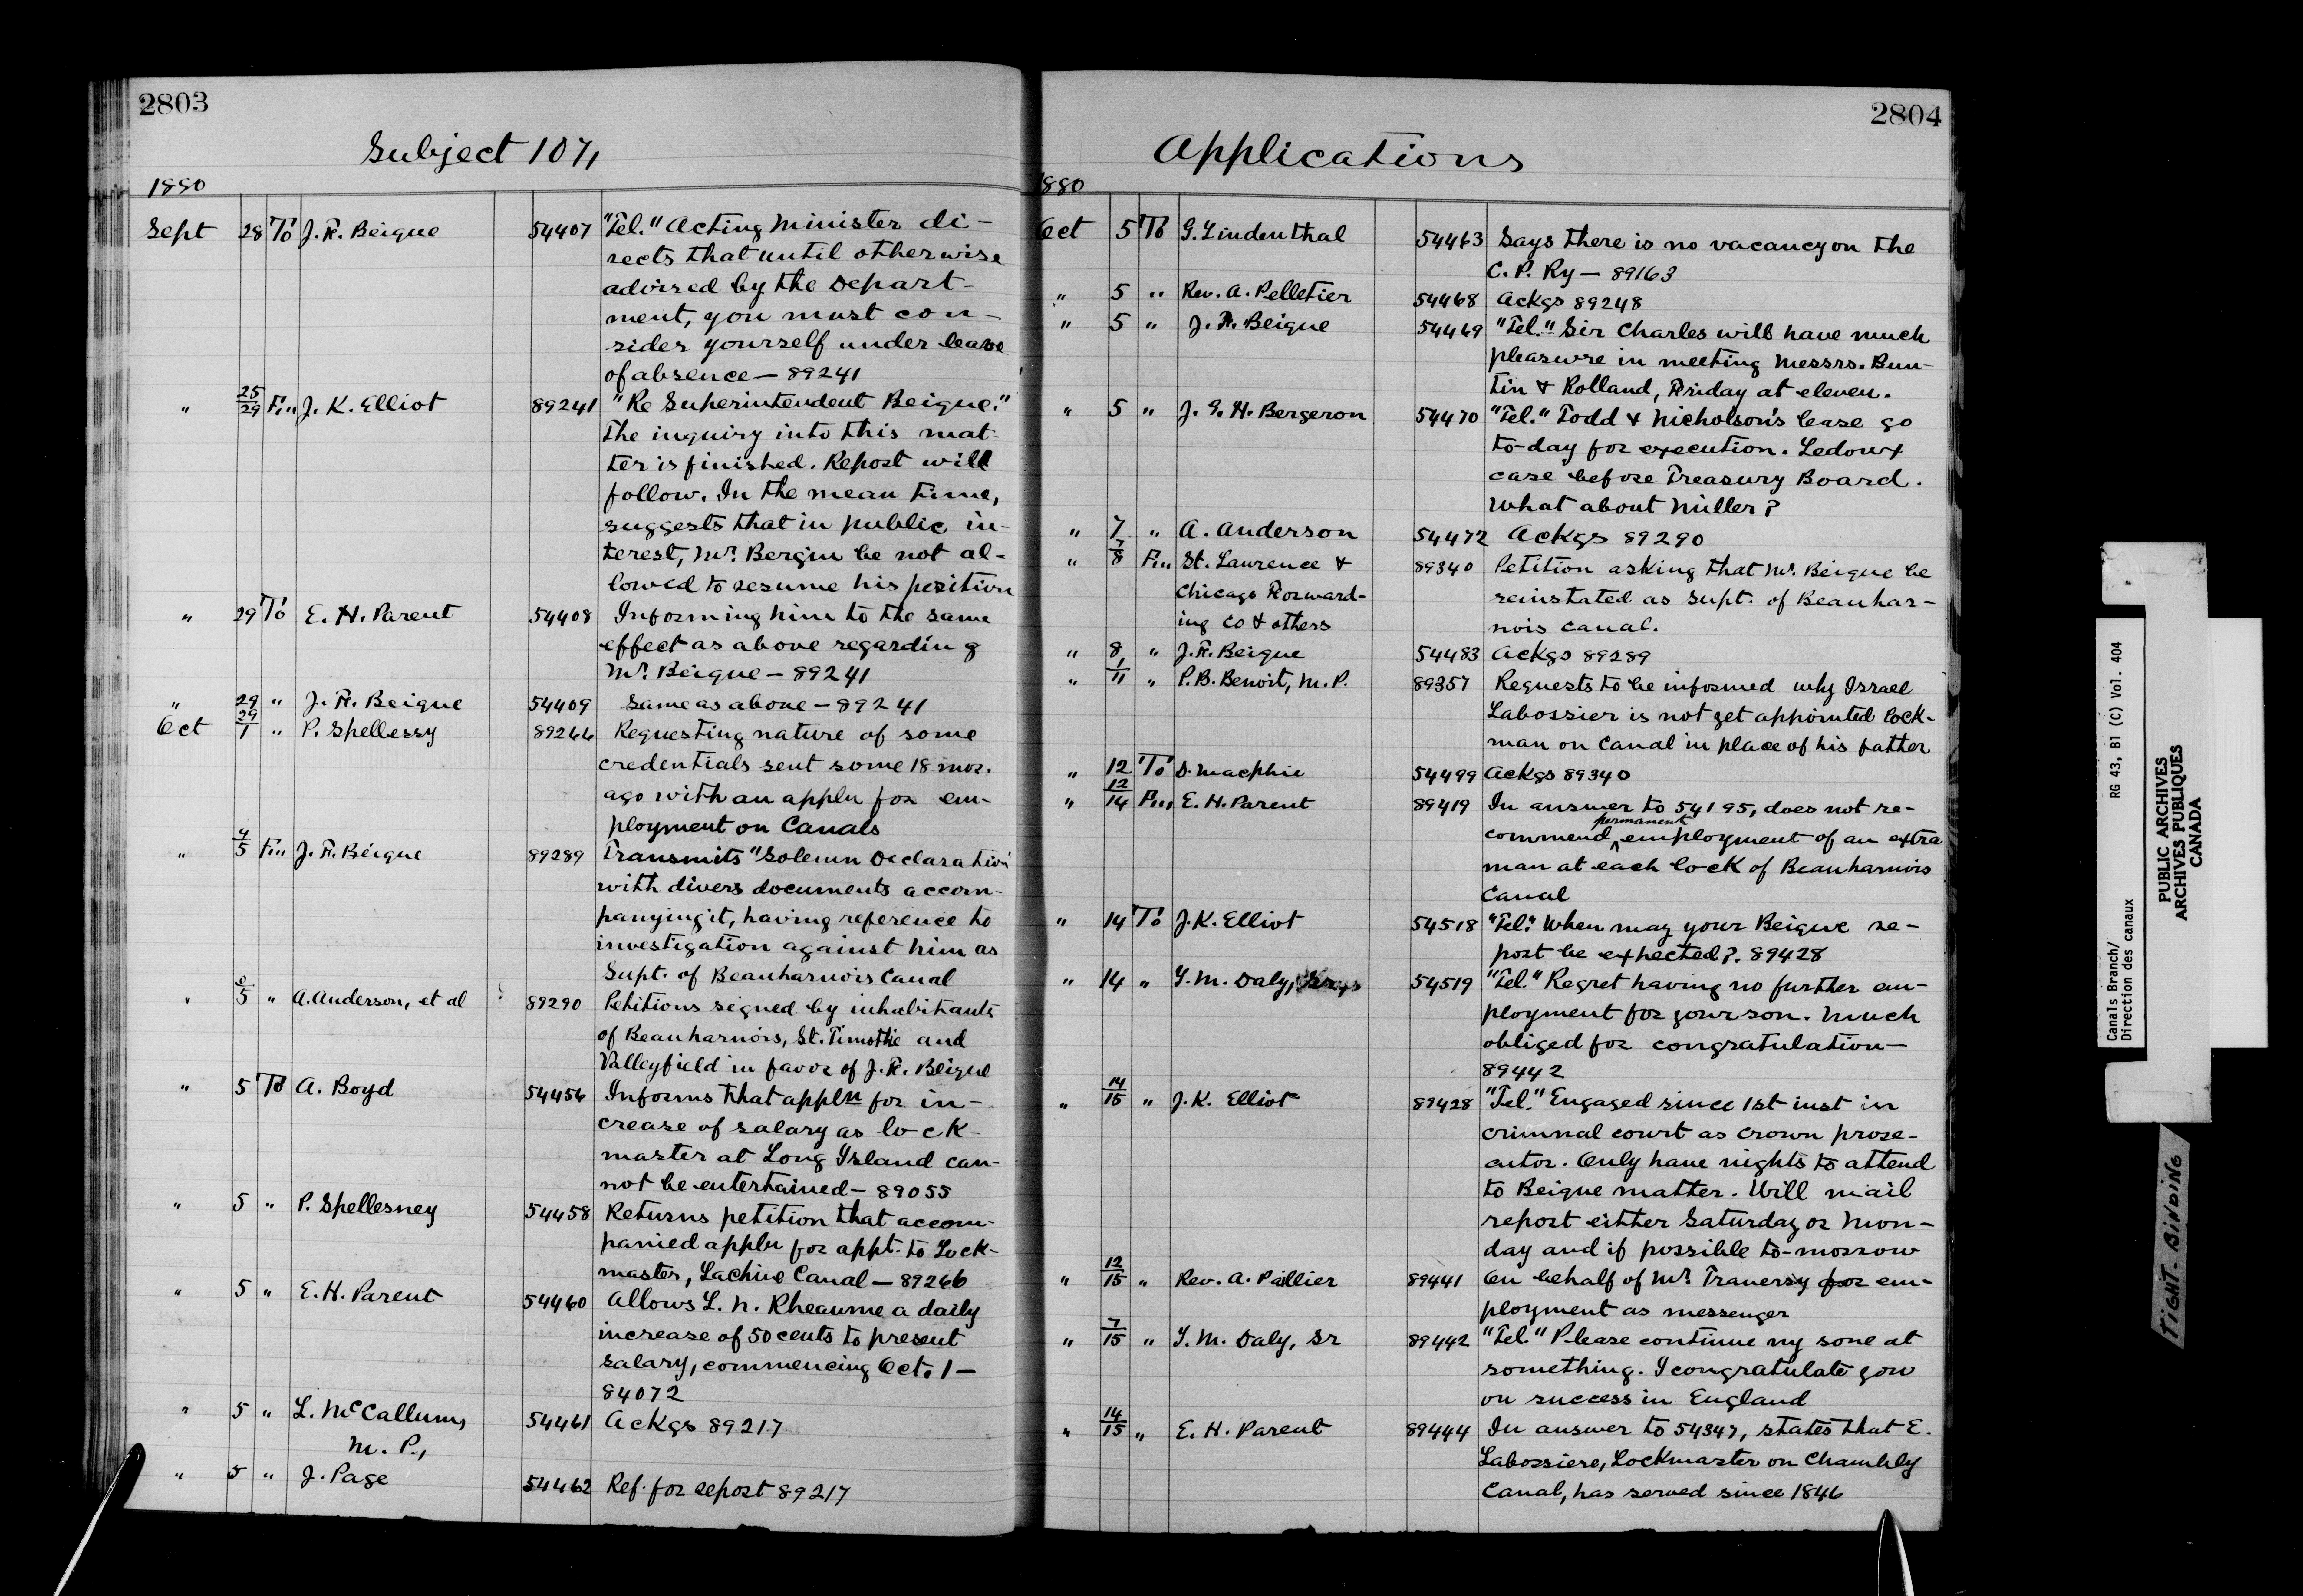 2803
Subject 107,
1880
Sept 28 To J. F. Beique 54407 "Tel." Acting Minister di-
rects that until otherwise
advised by the Depart-
ment, you must con-
sider yourself under leave
of absence — 89241
" 25/29 Fm J. K. Elliot 89241 "Re Superintendent Beique."
The inquiry into this mat-
ter is finished. Report will
follow. In the mean time,
suggests that in public in-
terest, Mr. Bergin be not al-
lowed to resume his position
" 29 To E. H. Parent 54408 Informing him to the same
effect as above regarding
Mr. Beique — 89241
" 29 " J. F. Beique 54409 Same as above — 89241
Oct 29/1 " P. Spellessy 89266 Requesting nature of some
credentials sent some 18 mos.
ago with an appln for em-
ployment on Canals
" 4/5 Fm J. F. Beique 89289 Transmits "Solemn Declaration"
with divers documents accom-
panying it, having reference to
investigation against him as
Supt. of Beauharnois Canal
" 5 " A. Anderson, et al 89290 Petitions signed by inhabitants
of Beauharnois, St. Timothie and
Valleyfield in favor of J. F. Beique
" 5 To A. Boyd 54456 Informs that appln for in-
crease of salary as lock-
master at Long Island can-
not be entertained — 89055
" 5 " P. Spellesney 54458 Returns petition that accom-
panied appln for appt. to Lock-
master, Lachine Canal — 89266
" 5 " E. H. Parent 54460 Allows L. N. Rheaume a daily
increase of 50 cents to present
salary, commencing Oct. 1 —
84072
" 5 " L. McCallum, 54461 Ackgs 89217
M. P.,
" 5 " J. Page 54462 Ref. for report 89217
2804
Applications
1880
Oct 5 To G. Lindenthal 54463 Says there is no vacancy on the
C. P. Ry — 89163
" 5 " Rev. A. Pelletier 54468 Ackgs 89248
" 5 " J. F. Beique 54469 "Tel." Sir Charles will have much
pleasure in meeting Messrs. Bun-
tin & Rolland, Friday at eleven.
" 5 " J. G. H. Bergeron 54470 "Tel." Todd & Nicholson's lease go
to-day for execution. Ledoux
case before Treasury Board.
What about Miller?
" 7 " A. Anderson 54472 Ackgs 89290
" 7/8 Fm St. Laurence & 89340 Petition asking that Mr. Beique be
Chicago Forward- reinstated as Supt. of Beauhar-
ing Co & others nois Canal.
" 8 " J. F. Beique 54483 Ackgs 89289
" 1/11 " P. B. Benoit, M. P. 89357 Requests to be informed why Israel
Labossier is not yet appointed lock-
man on Canal in place of his father
" 12 To D. Macphie 54499 Ackgs 89340
" 12/14 Fm E. H. Parent 89419 In answer to 54195, does not re-
commend permanent employment of an extra
man at each lock of Beauharnois
Canal
" 14 To J. K. Elliot 54518 "Tel." When may your Beique re-
port be expected?. 89428
" 14 " T. M. Daly, 54519 "Tel." Regret having no further em-
ployment for your son. Much
obliged for congratulation —
89442
" 14/15 " J. K. Elliot 89428 "Tel." Engaged since 1st inst in
criminal court as crown prose-
cutor. Only have nights to attend
to Beique matter. Will mail
report either Saturday or Mon-
day and if possible to-morrow
" 12/15 " Rev. A. Pallier 89441 On behalf of Mr. Traversy for em-
ployment as messenger
" 7/15 " T. M. Daly, Sr 89442 "Tel" Please continue my sone at
something. I congratulate you
on success in England
" 14/15 " E. H. Parent 89444 In answer to 54347, states that E.
Labossiere, Lockmaster on Chambly
Canal, has served since 1846
Canals Branch/ RG 43, B1 (C) Vol. 404
Direction des canaux
PUBLIC ARCHIVES
ARCHIVES PUBLIQUES
CANADA
TIGHT BINDING